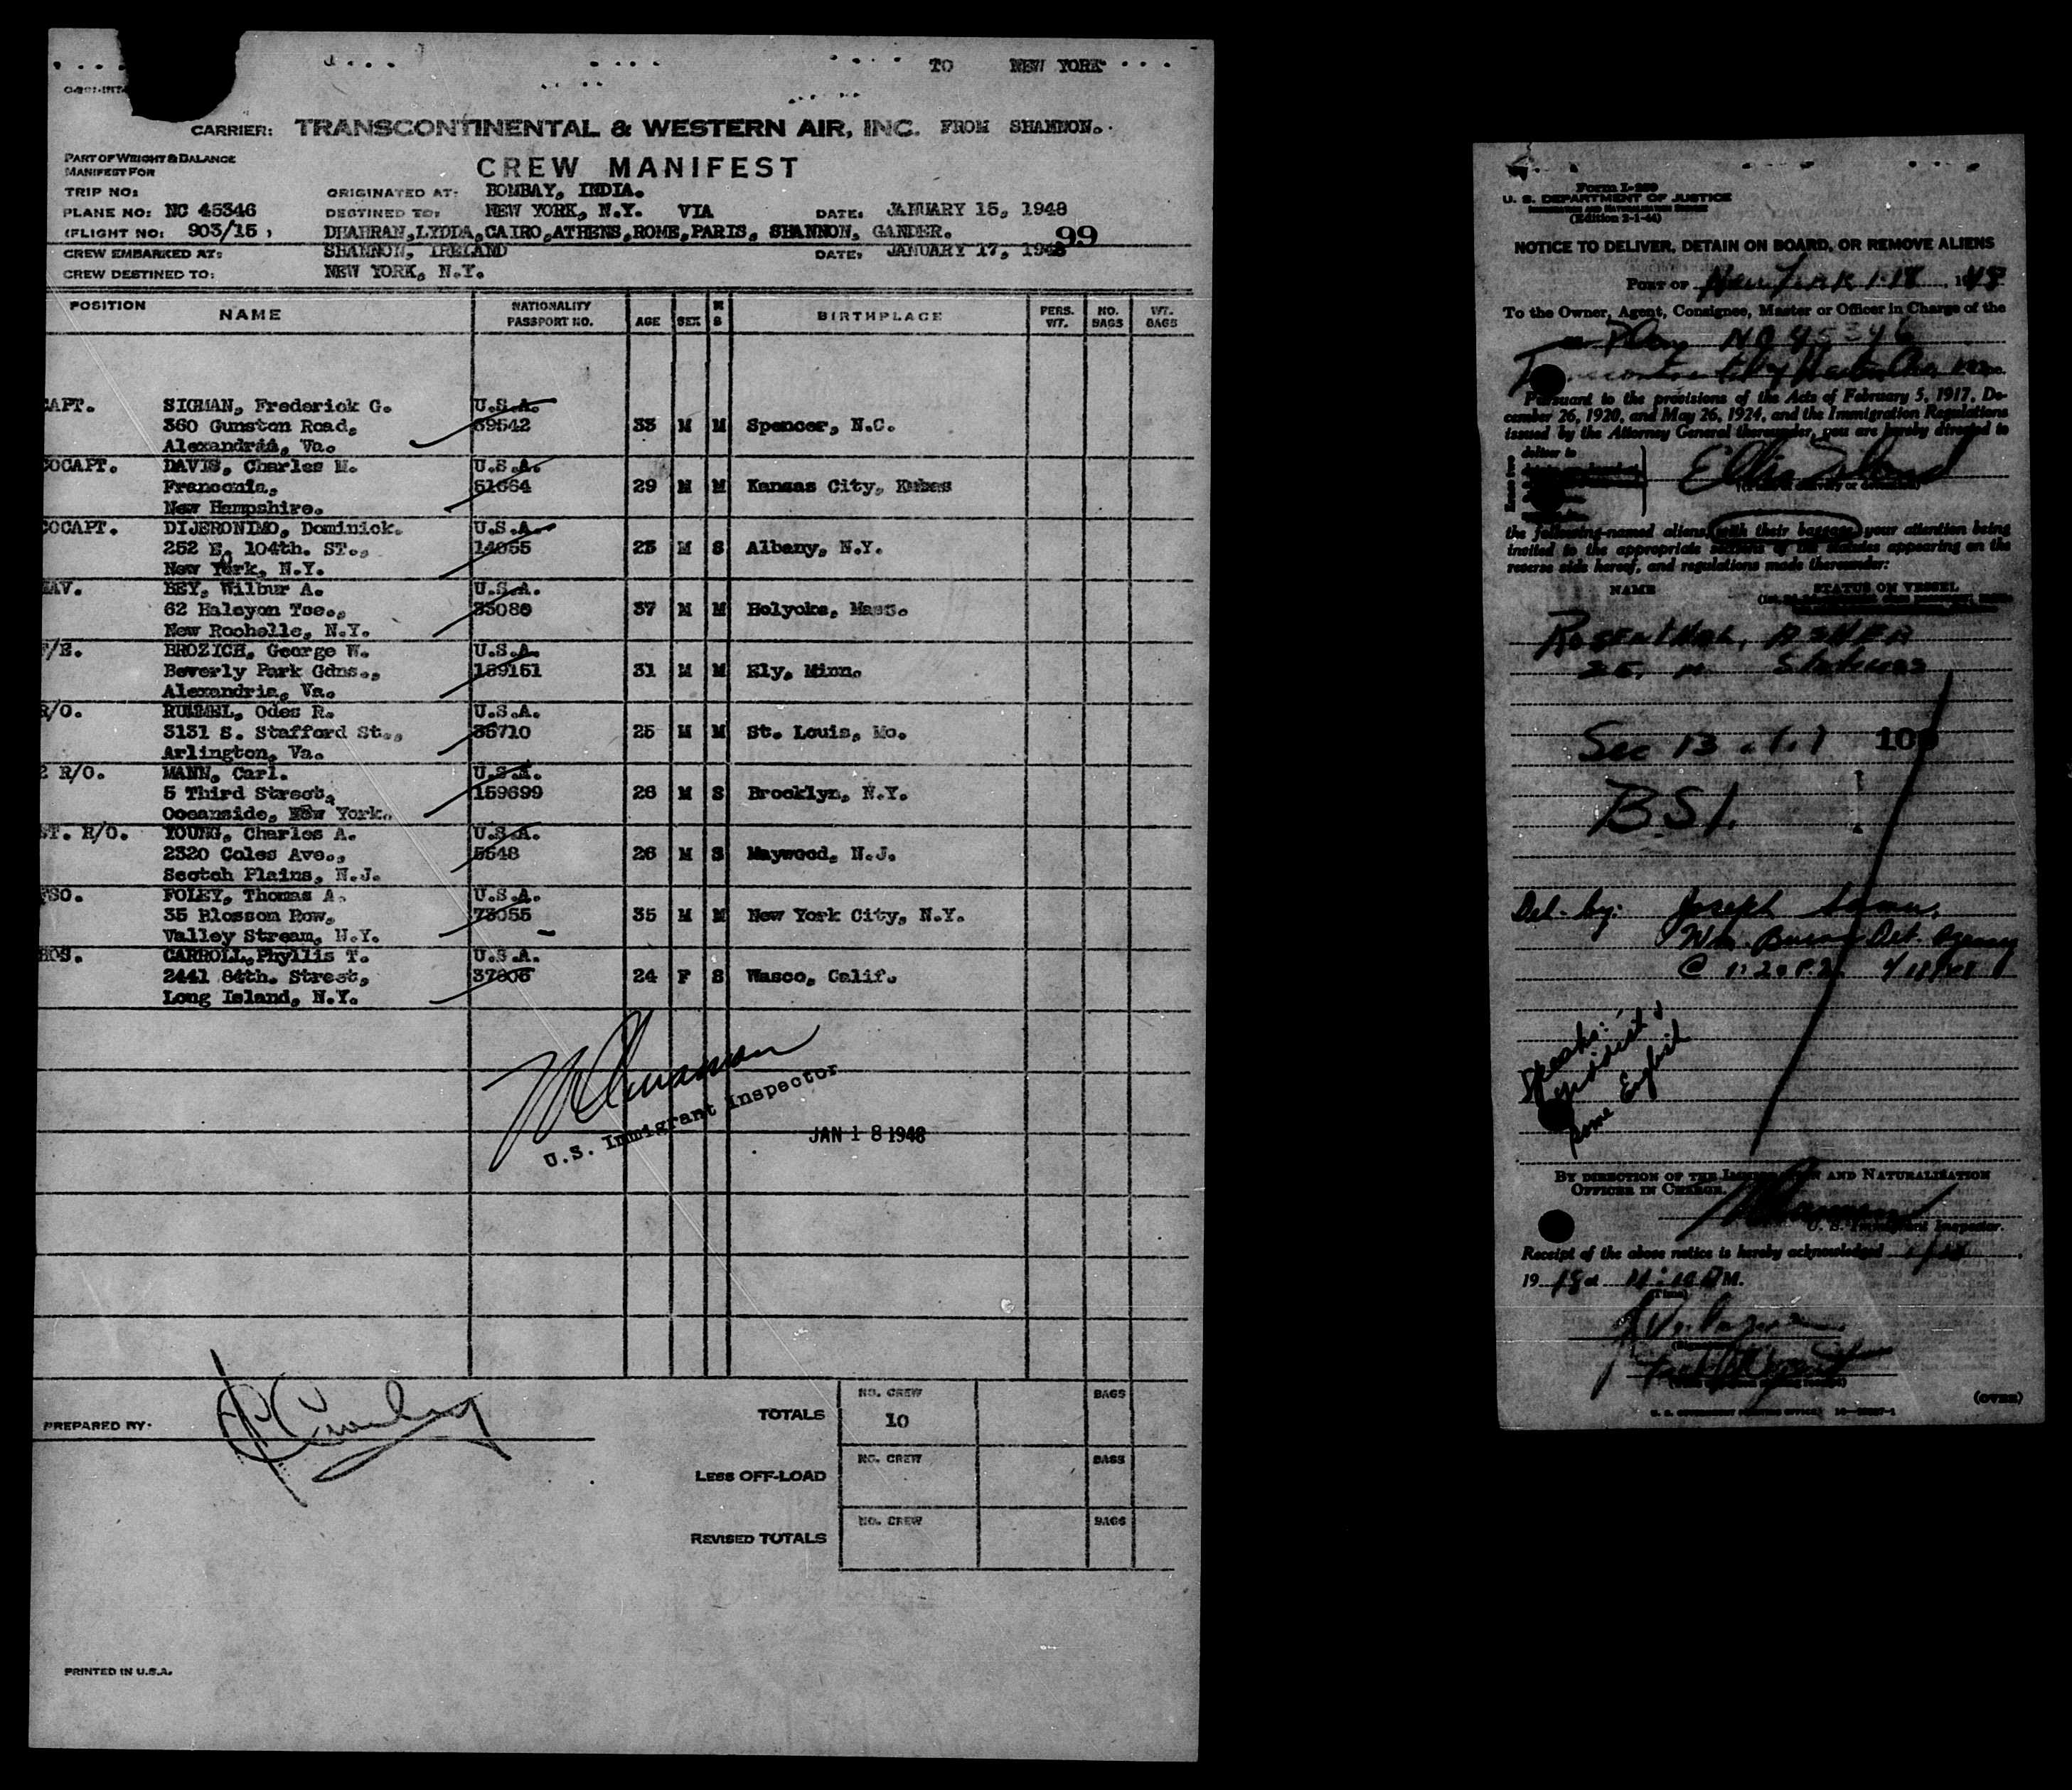 TO NEW YORK
CARRIER: TRANSCONTINENTAL & WESTERN AIR, INC. FROM SHANNON.
PART OF WEIGHT & BALANCE
MANIFEST FOR
CREW MANIFEST
TRIP NO: ORIGINATED AT: BOMBAY, INDIA.
PLANE NO: NC 45346 DESTINED TO: NEW YORK, N.Y. VIA DATE: JANUARY 15, 1948
(FLIGHT NO: 903/15 ) DHAHRAN,LYDDA,CAIRO,ATHENS,ROME,PARIS, SHANNON, GANDER. 99
CREW EMBARKED AT: SHANNON, IRELAND DATE: JANUARY 17, 1948
CREW DESTINED TO: NEW YORK, N.Y.
POSITION NAME NATIONALITY PASSPORT NO. AGE SEX M S BIRTHPLACE PERS. WT. NO. BAGS WT. BAGS
CAPT. SIGMAN, Frederick G. U.S.A.
360 Gunston Road, 39542 33 M M Spencer, N.C.
Alexandria, Va.
COCAPT. DAVIS, Charles M. U.S.A.
Franconia, 51664 29 M M Kansas City,
New Hampshire.
COCAPT. DIJERONIMO, Dominick. U.S.A.
252 E. 104th. ST., 14055 23 M S Albany, N.Y.
New York, N.Y.
NAV. BEY, Wilbur A. U.S.A.
62 Halcyon Tce., 33080 37 M M Holyoke, Mass.
New Rochelle, N.Y.
F/E. BROZICH, George W. U.S.A.
Beverly Park Gdns., 159151 31 M M Ely, Minn.
Alexandria, Va.
R/O. RUMMEL, Odes R. U.S.A.
3131 S. Stafford St., 35710 25 M M St. Louis, Mo.
Arlington, Va.
2 R/O. MANN, Carl. U.S.A.
5 Third Street, 159699 26 M S Brooklyn, N.Y.
Oceanside, New York.
ST. R/O. YOUNG, Charles A. U.S.A.
2320 Coles Ave., 5548 26 M S Maywood, N.J.
Scotch Plains, N.J.
FSO. FOLEY, Thomas A. U.S.A.
35 Blossom Row, 73055 35 M M New York City, N.Y.
Valley Stream, N.Y.
HOS. CARROLL,Phyllis T. U.S.A.
2441 84th. Street, 37806 24 F S Wasco, Calif.
Long Island, N.Y.
U.S. Immigrant Inspector
JAN 18 1948
PREPARED BY.
TOTALS NO. CREW 10 BAGS
LESS OFF-LOAD NO. CREW BAGS
REVISED TOTALS NO. CREW BAGS
PRINTED IN U.S.A.
Form I-259
U. S. DEPARTMENT OF JUSTICE
IMMIGRATION AND NATURALIZATION SERVICE
(Edition 2-1-44)
NOTICE TO DELIVER, DETAIN ON BOARD, OR REMOVE ALIENS
PORT OF New York 1-18, 1948
To the Owner, Agent, Consignee, Master or Officer in Charge of the
Plane NC 45346
Transcontinental & Western Air Inc.
Pursuant to the provisions of the Acts of February 5, 1917, December 26, 1920, and May 26, 1924, and the Immigration Regulations
issued by the Attorney General thereunder, you are hereby directed to
deliver to
Ellis Island
the following-named aliens, with their baggage, your attention being
invited to the appropriate sections of the statutes appearing on the
reverse side hereof, and regulations made thereunder:
NAME STATUS ON VESSEL
ROSENTHAL, ASHER
25, M Stateless
Sec 13 100
BSI.
Del. by: Joseph
Wm. Burns Det. Agency
Speaks:
Yiddish &
some English
BY DIRECTION OF THE IMMIGRATION AND NATURALIZATION
OFFICER IN CHARGE.
U. S. Immigrant Inspector.
Receipt of the above notice is hereby acknowledged
19 48 at M.
(Time)
(OVER)